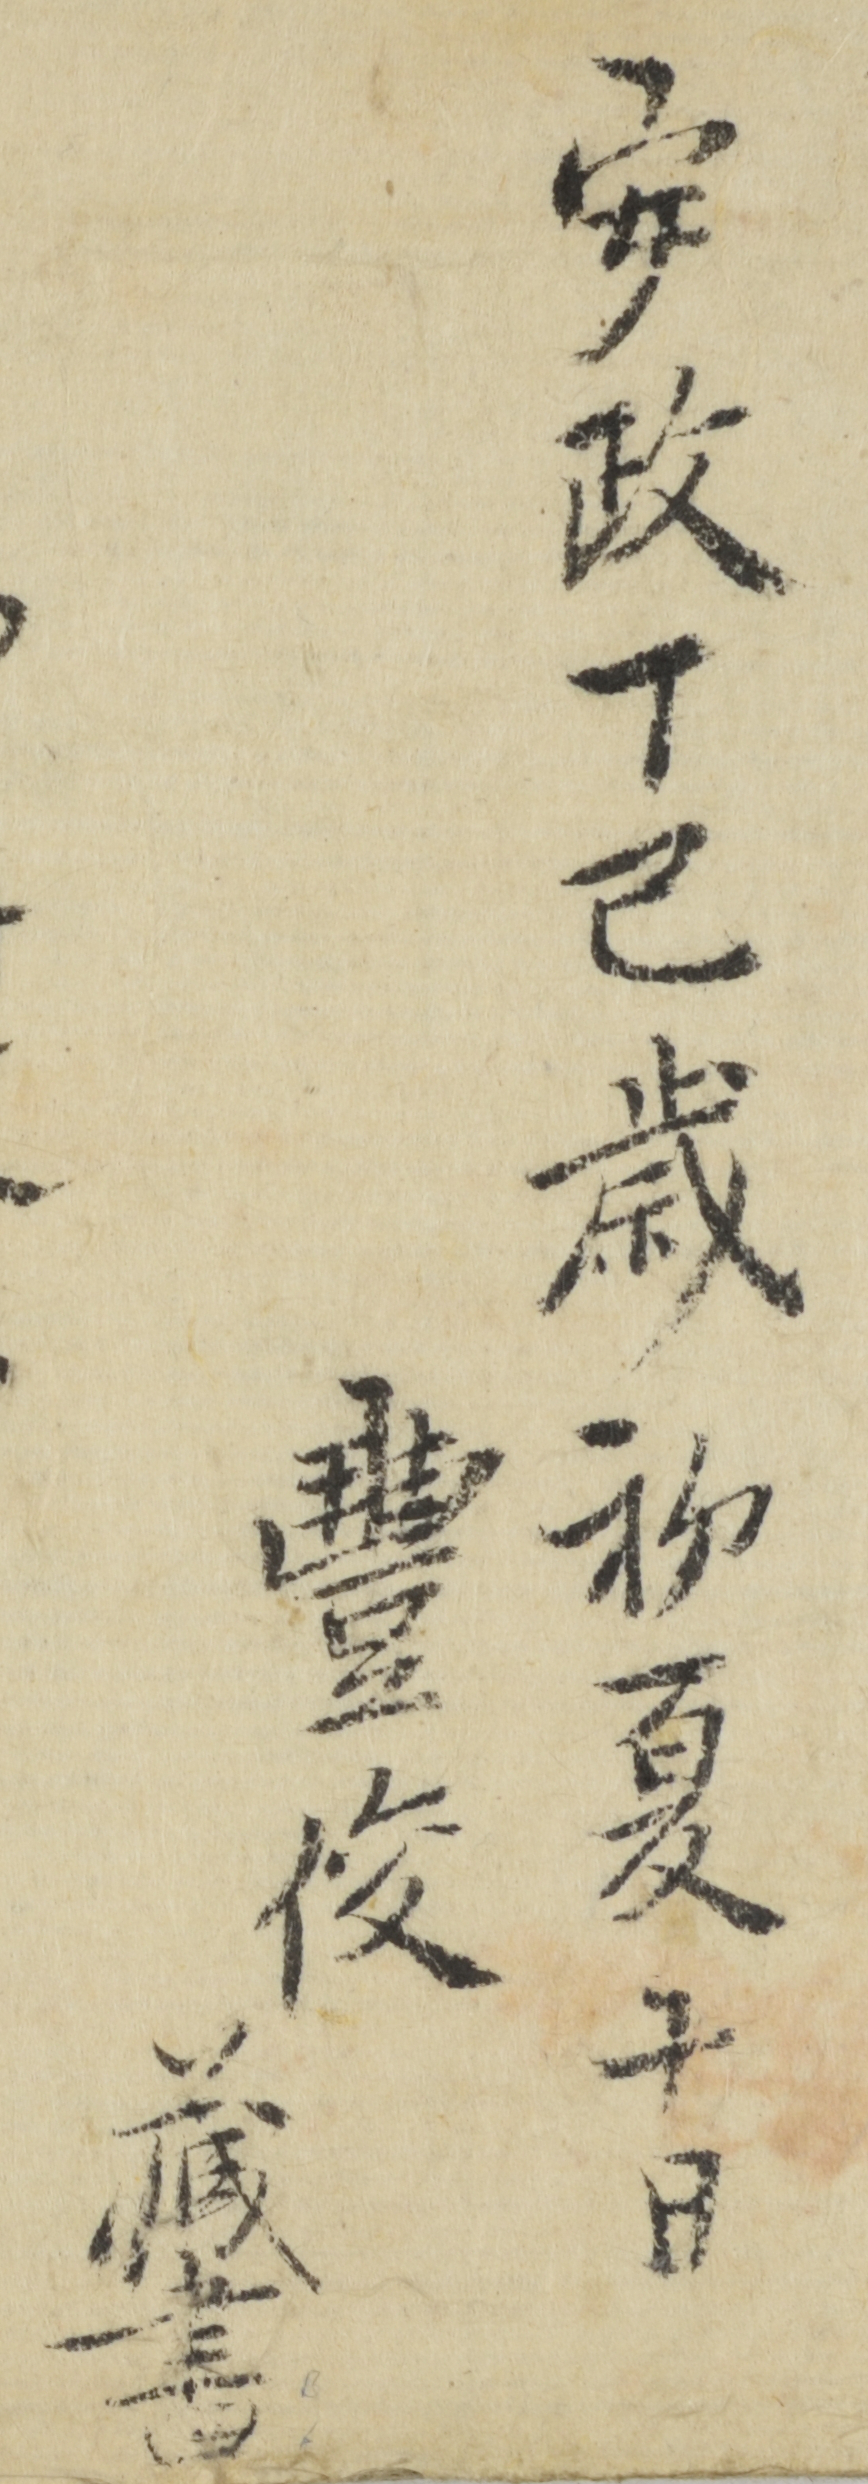 安政丁巳歳初夏十日
豐俊
藏書